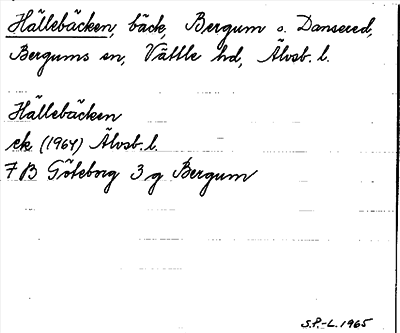 Hällebäcken, bäck, Bergum o. Dansered,
Bergums sn, Vättle hd, Älvsb. l.
Hällebäcken
ek (1964) Älvsb. l.
7 B Göteborg 3 g Bergum
S.P.-L. 1965